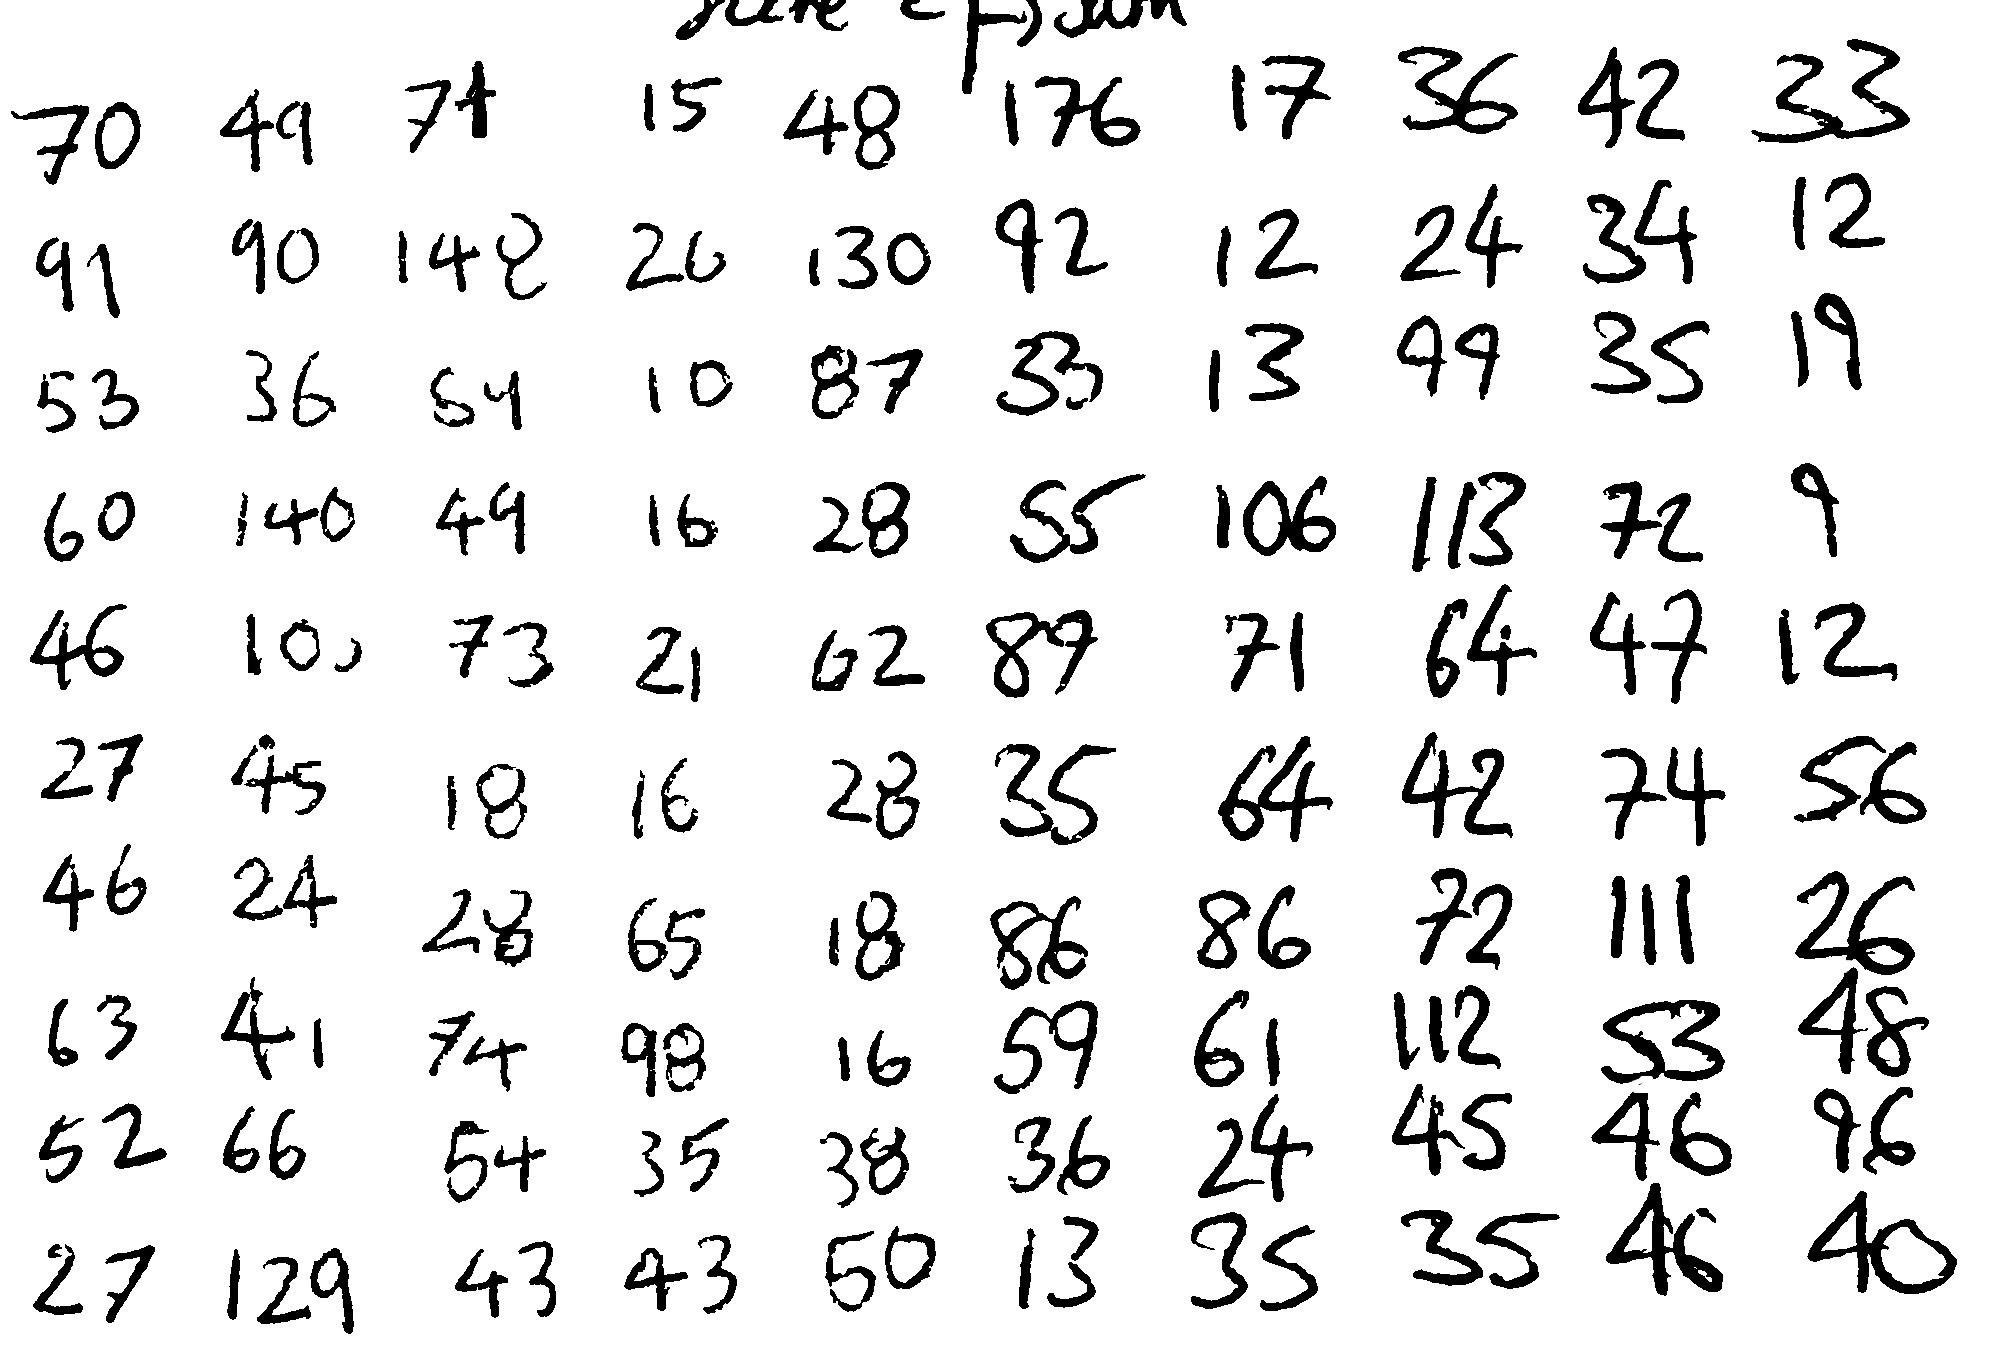 70 49 74 15 48 176 17 36 42 33
91 90 148 26 130 92 12 24 34 12
53 36 64 10 87 33 13 99 35 19
60 140 49 16 28 55 106 113 72 9
46 100 73 21 62 89 71 64 47 12
27 45 18 16 28 35 64 42 74 56
46 24 28 65 18 86 86 72 111 26
63 41 74 98 16 59 61 112 53 48
52 66 54 35 38 36 24 45 46 96
27 129 43 43 50 13 35 35 46 40